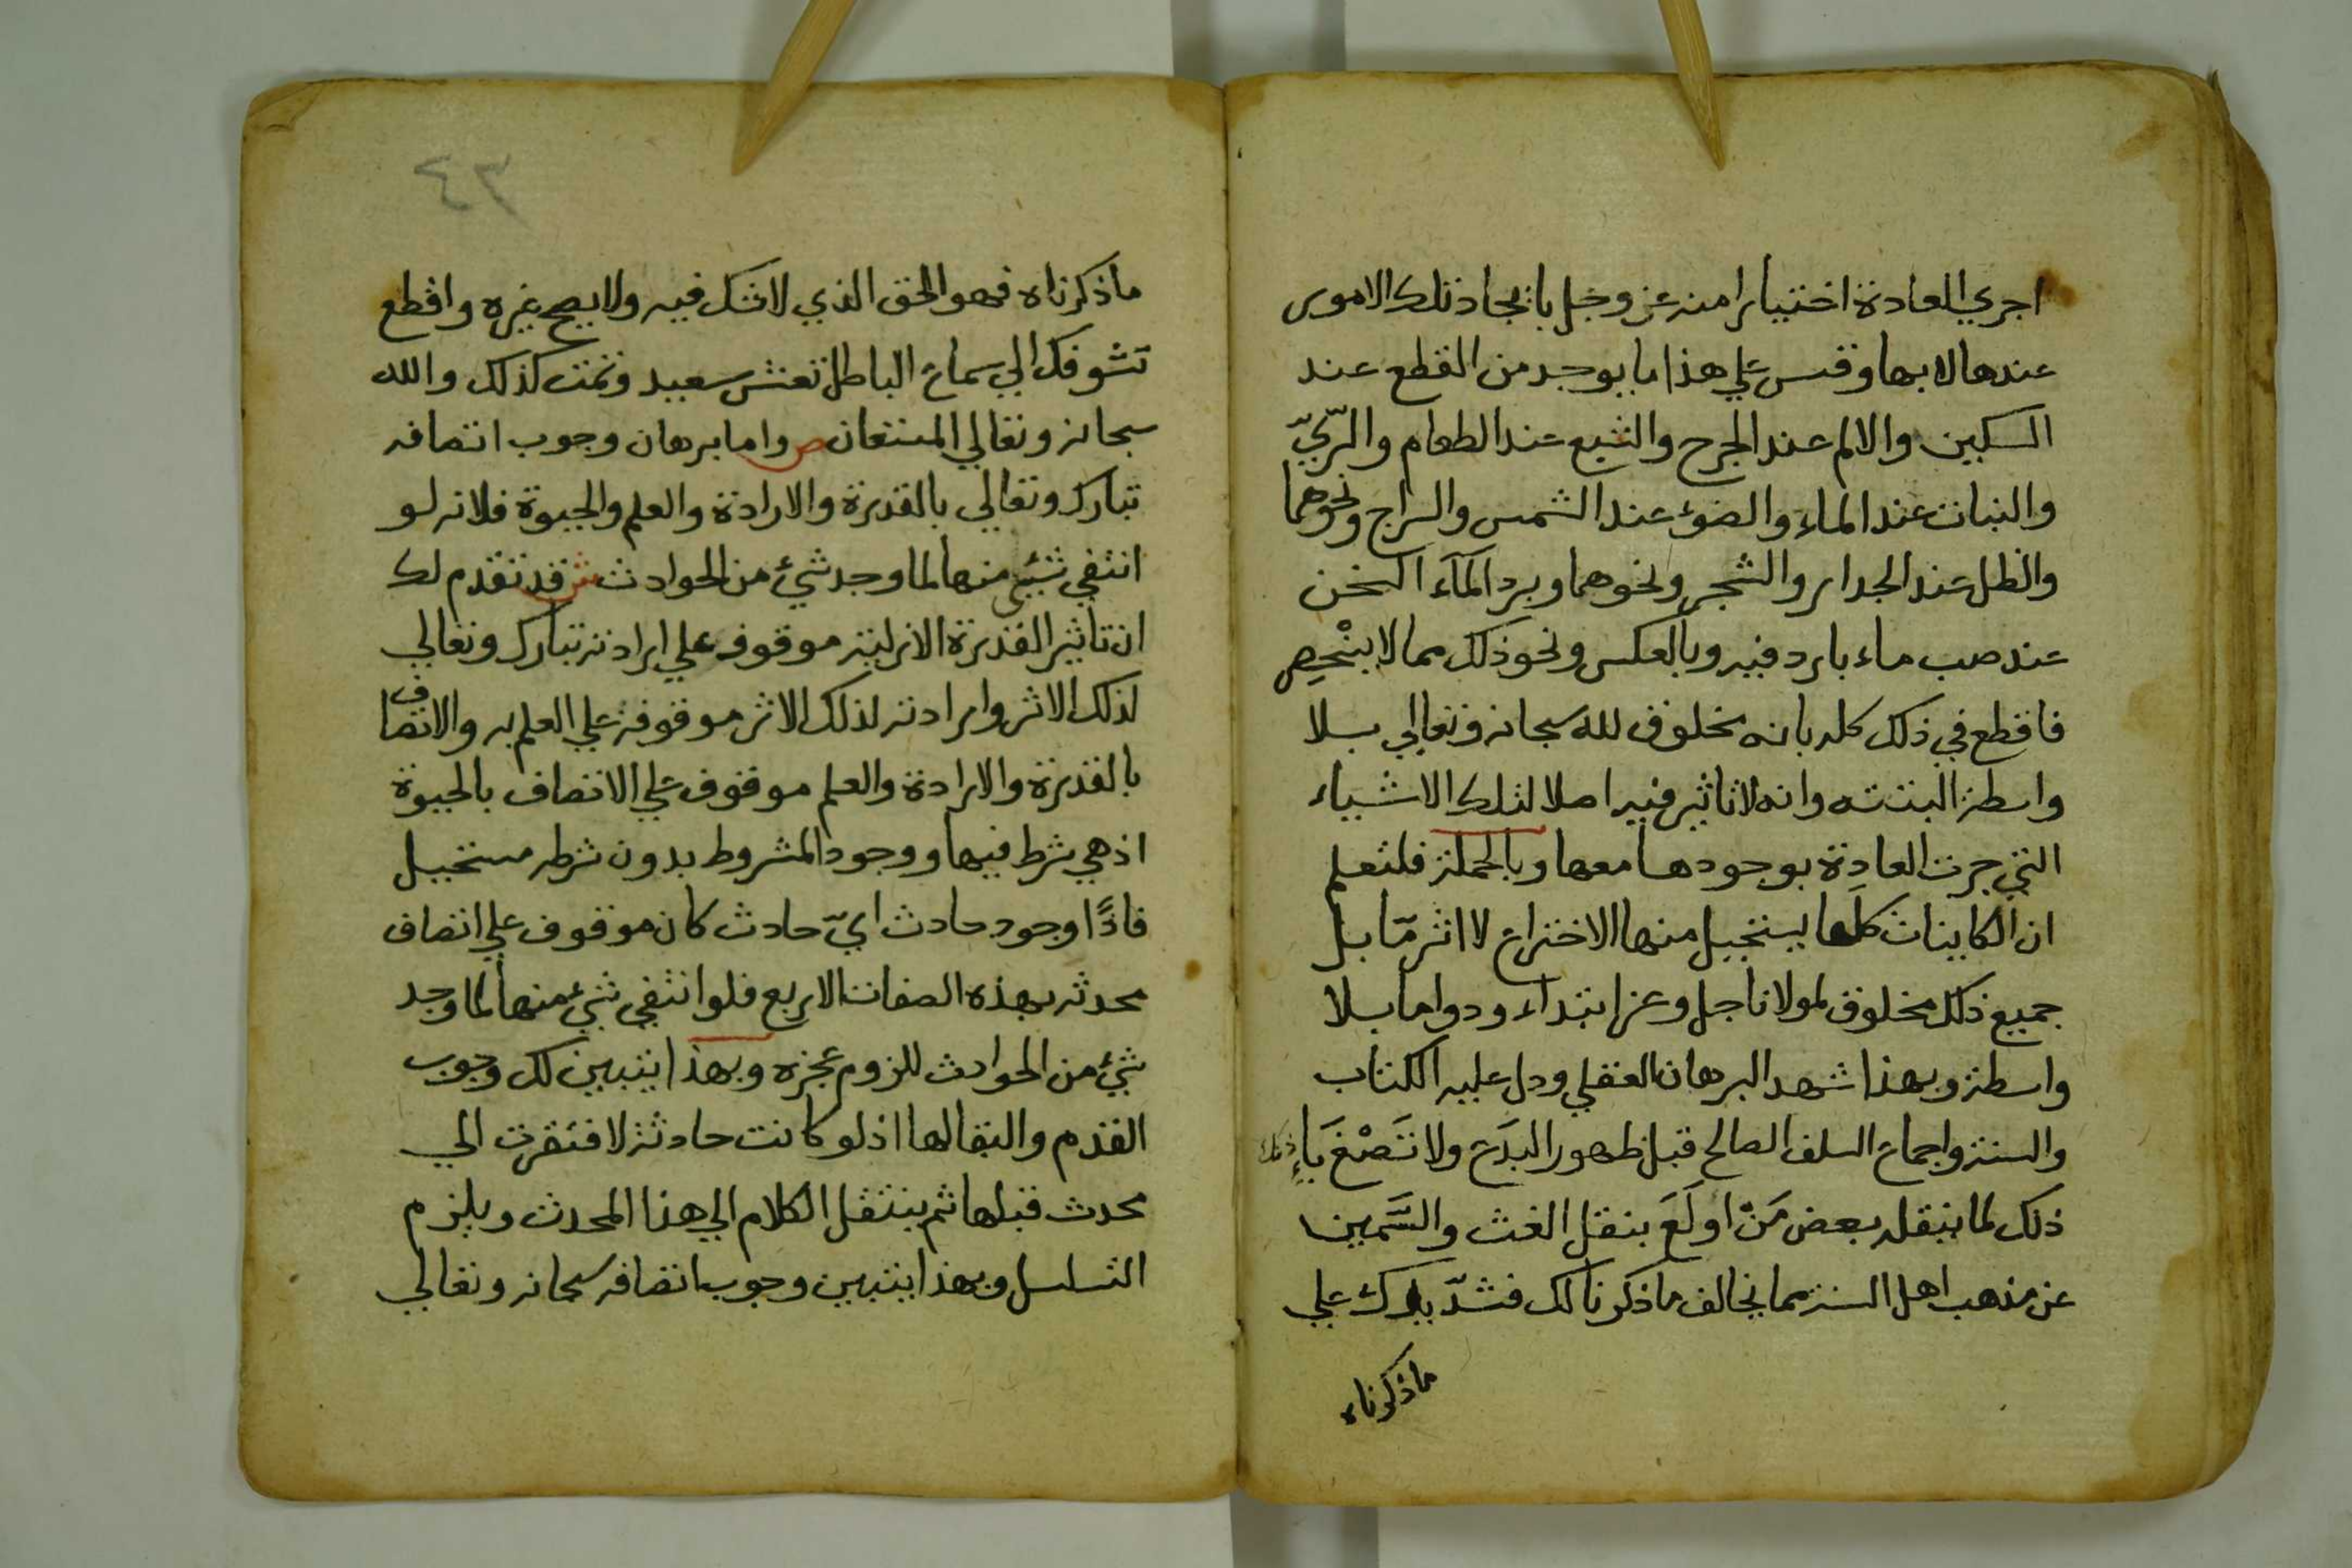 اجري العادة اختيارا منه عز وجل بايجاد تلك الامور
عندها لا بها وقس علي هذا ما يوجد من القطع عند
السكين والالم عند الجرح والشبع عند الطعام والرّيّ
والنبات عند الماء والضوء عند الشمس والسراج ونحوهما
والظل عند الجدار والشجر ونحوهما وبرد المآء السخن
عند صب ماء بارد فيه وبالعكس ونحو ذلك مما لا ينْحصِر
فاقطع في ذلك كله بانه مخلوق لله سبحانه وتعالي بلا
واسطة البتته وانه لا تاثير فيه اصلا لتلك الاشياء
التي جرت العادة بوجودها معها وبالجملة فلتعلم
ان الكاينات كلها يستحيل منها الاختراع لا اثر مّا بل
جميع ذلك مخلوق لمولانا جل وعز ابتداء ودواما بلا
واسطة وبهذا شهد البرهان العقلي ودل عليه الكتاب
والسنة واجماع السلف الصالح قبل ظهور البدَع ولا تَصْغ يَا
ذلك لما ينقله بعض مَنْ اولَعَ بنقل الغث والسَّمين
عن مذهب اهل السنة مما يخالف ما ذكرنا لك فشدّ يدك علي
ما ذكرناه
٣٤
ما ذكرناه فهو الحق الذي لا شك فيه ولا يصح غيره واقطع
تشوفك الي سماع الباطل تعش سعيد وتمت كذلك والله
سبحانه وتعالي المستعان ص واما برهان وجوب اتصافه
تبارك وتعالي بالقدرة والارادة والعلم والحيوة فلانه لو
انتفي شيئ منها لما وجد شيء من الحوادث ش قد تقدم لك
ان تاثير القدرة الازلية موقوف علي ارادته تبارك وتعالي
لذلك الاثر وارادته لذلك الاثر موقوفة علي العلم به والاتصاف
بالقدرة والارادة والعلم موقوف علي الاتصاف بالحيوة
اذ هي شرط فيها ووجود المشروط بدون شرطه مستحيل
فاذًا وجود حادث ايّ حادث كان موقوف علي اتصاف
محدثه بهذه الصفات الاربع فلو انتفي شيء منها لما وجد
شيء من الحوادث للزوم عجزه وبهذا يتبين لك وجوب
القدم والبقا لها اذ لو كانت حادثة لافتقرت الي
محدث قبلها ثم ينتقل الكلام الي هذا المحدث ويلزم
التسلسل وبهذا يتبين وجوب اتصافه سبحانه وتعالي